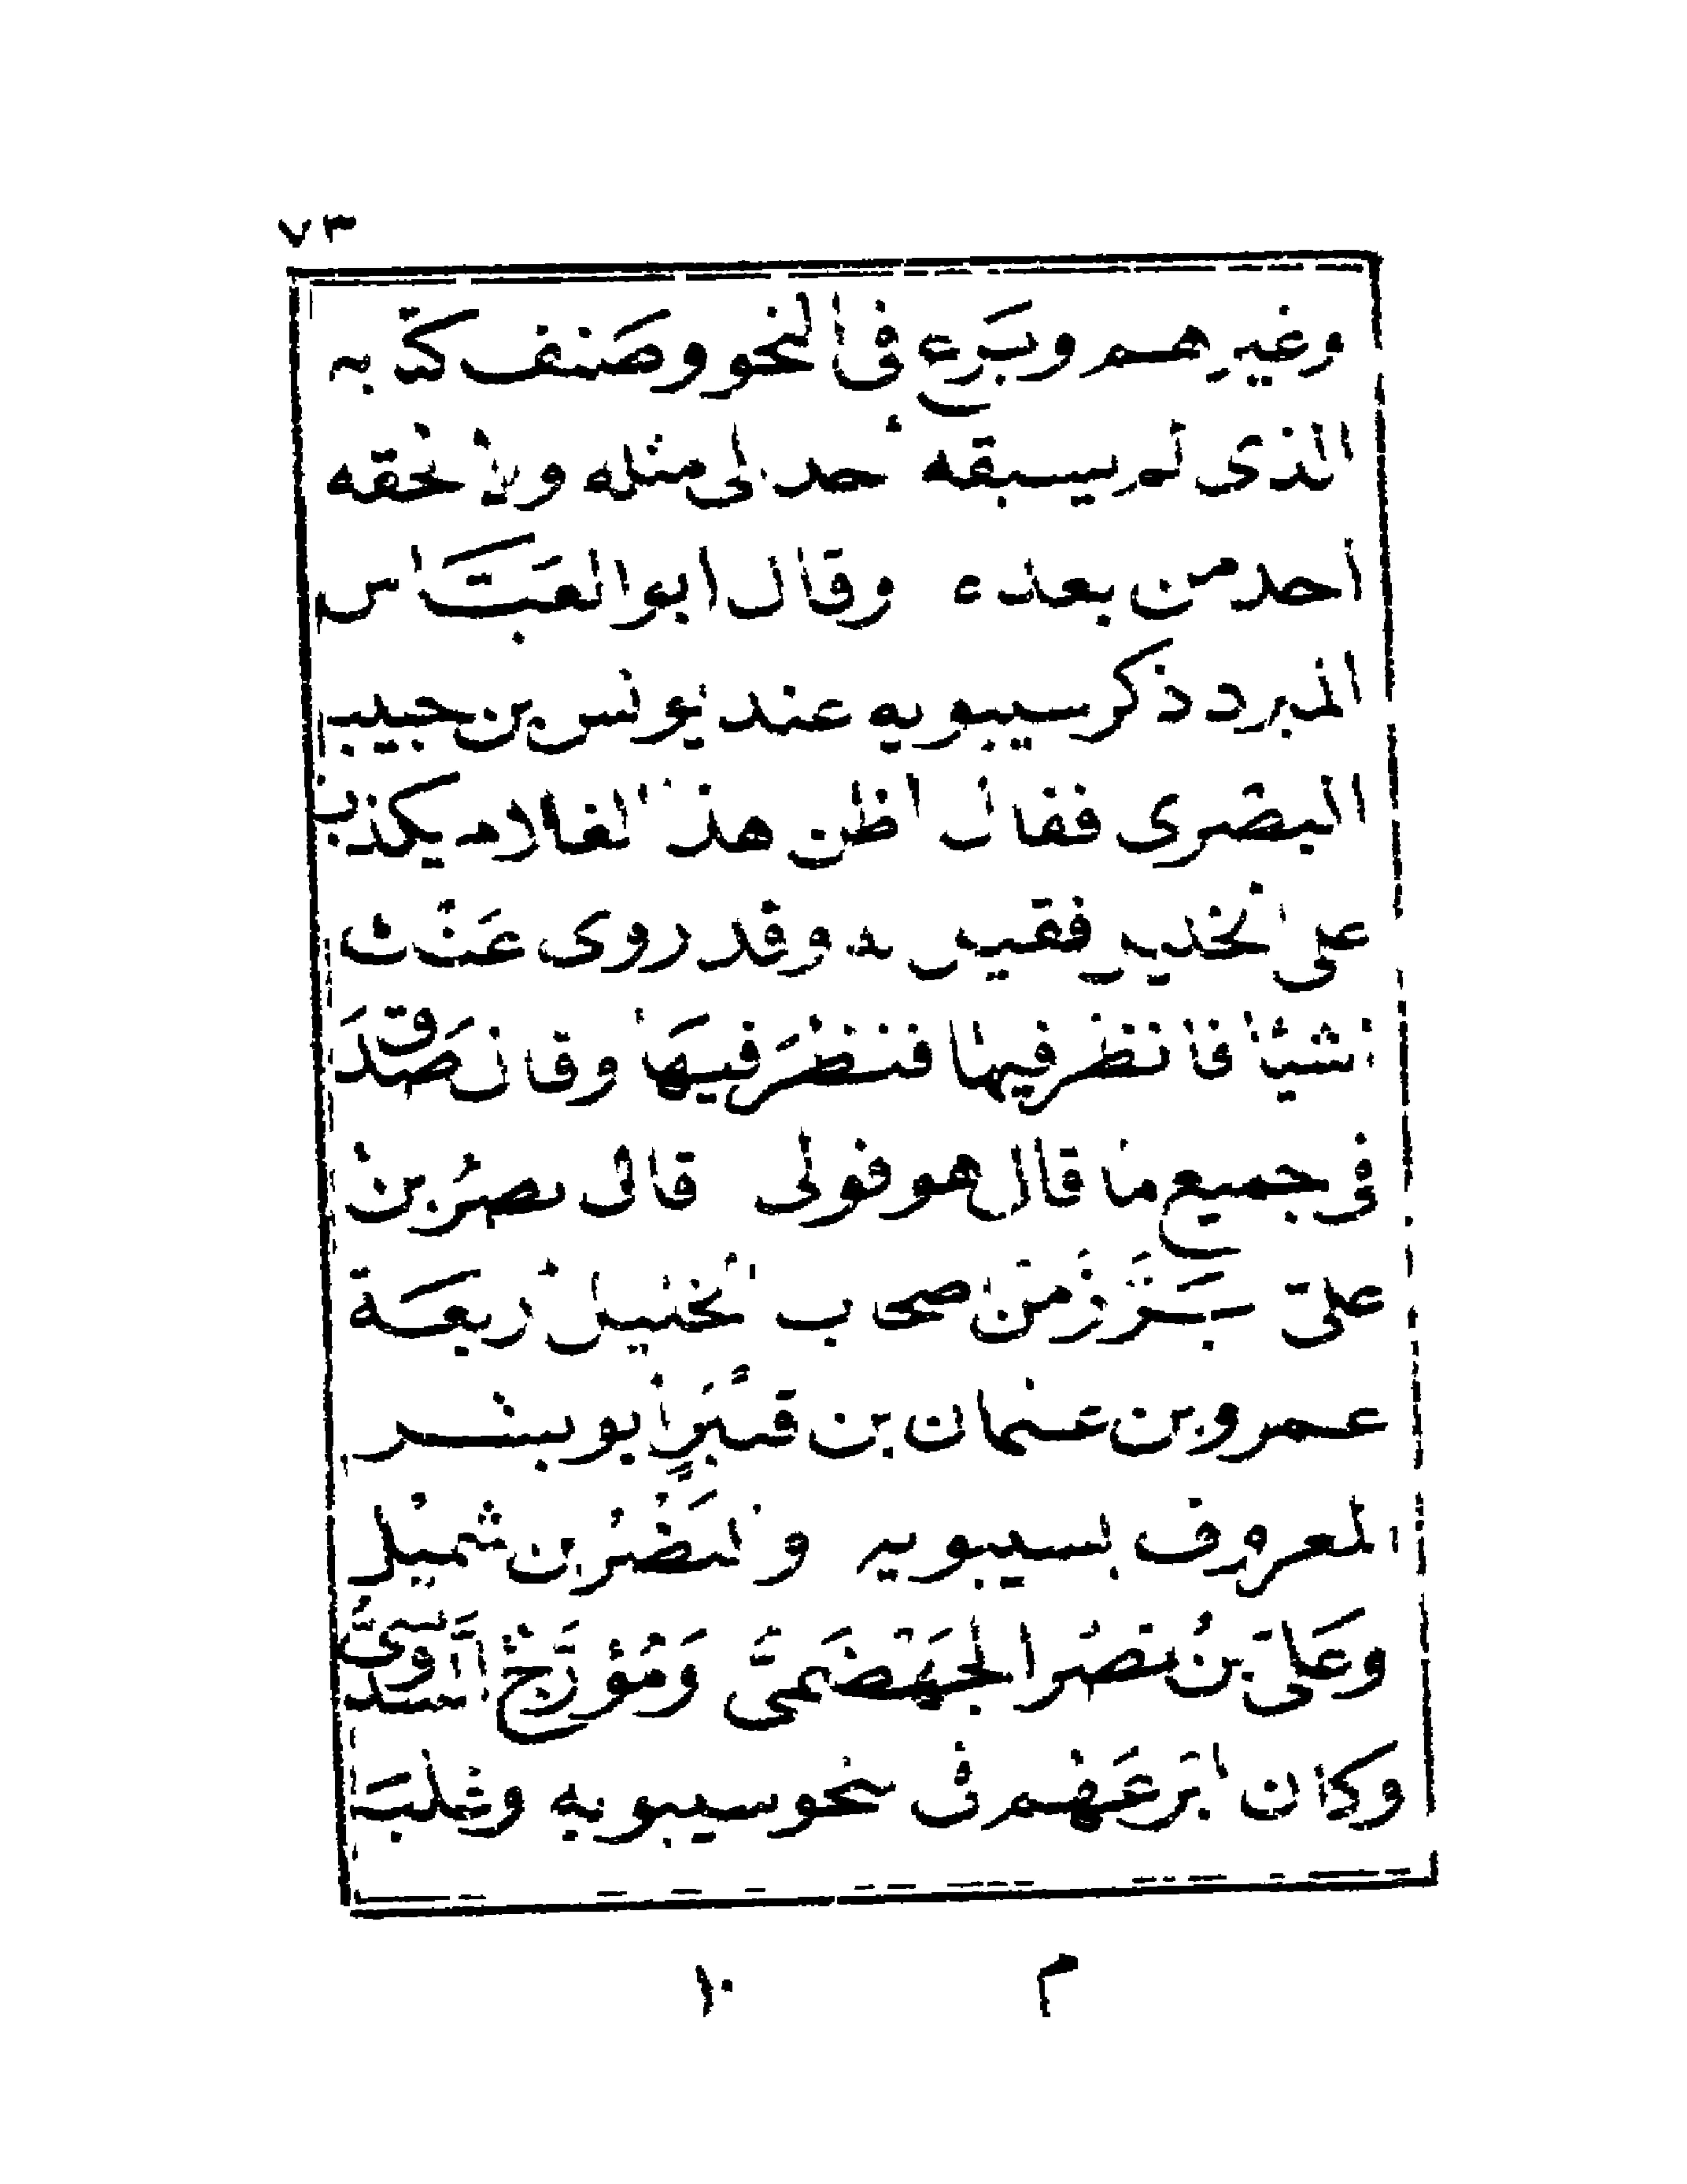 ٧٣
وغيرهم وبَرَع فى النحو وصَنف كتابه
الذى لم يسبقه أحد الى مثله ولا لحقه
احد من بعده وقال ابو العَبَّاس
المبرد ذكر سيبويه عند يونس بن حبيب
البصرى فقال اظن هذا الغلام يكذب
على الخليل فقيل له وقد روى عَنْك
اشيَا فانظر فيها فنظَرَ فيهَا وقال صَدَق
فى جميع ما قال هو قولى قال نصرُ بنْ
علىّ بَرَزَ مِن اصحاب الخليل اربعَة
عمرو بن عثمان بن قنْبَرٍ أبو بشر
المعروف بسيبويه والنَضْرُ بن شميْل
وعَلىّ بنُ نصْر الجَهْضَمىُّ وَمُؤرَّجٌ السَّدُوسىُّ
وكان ابرَعَهُم فى نحو سيبويه وغلبَ
م ١٠